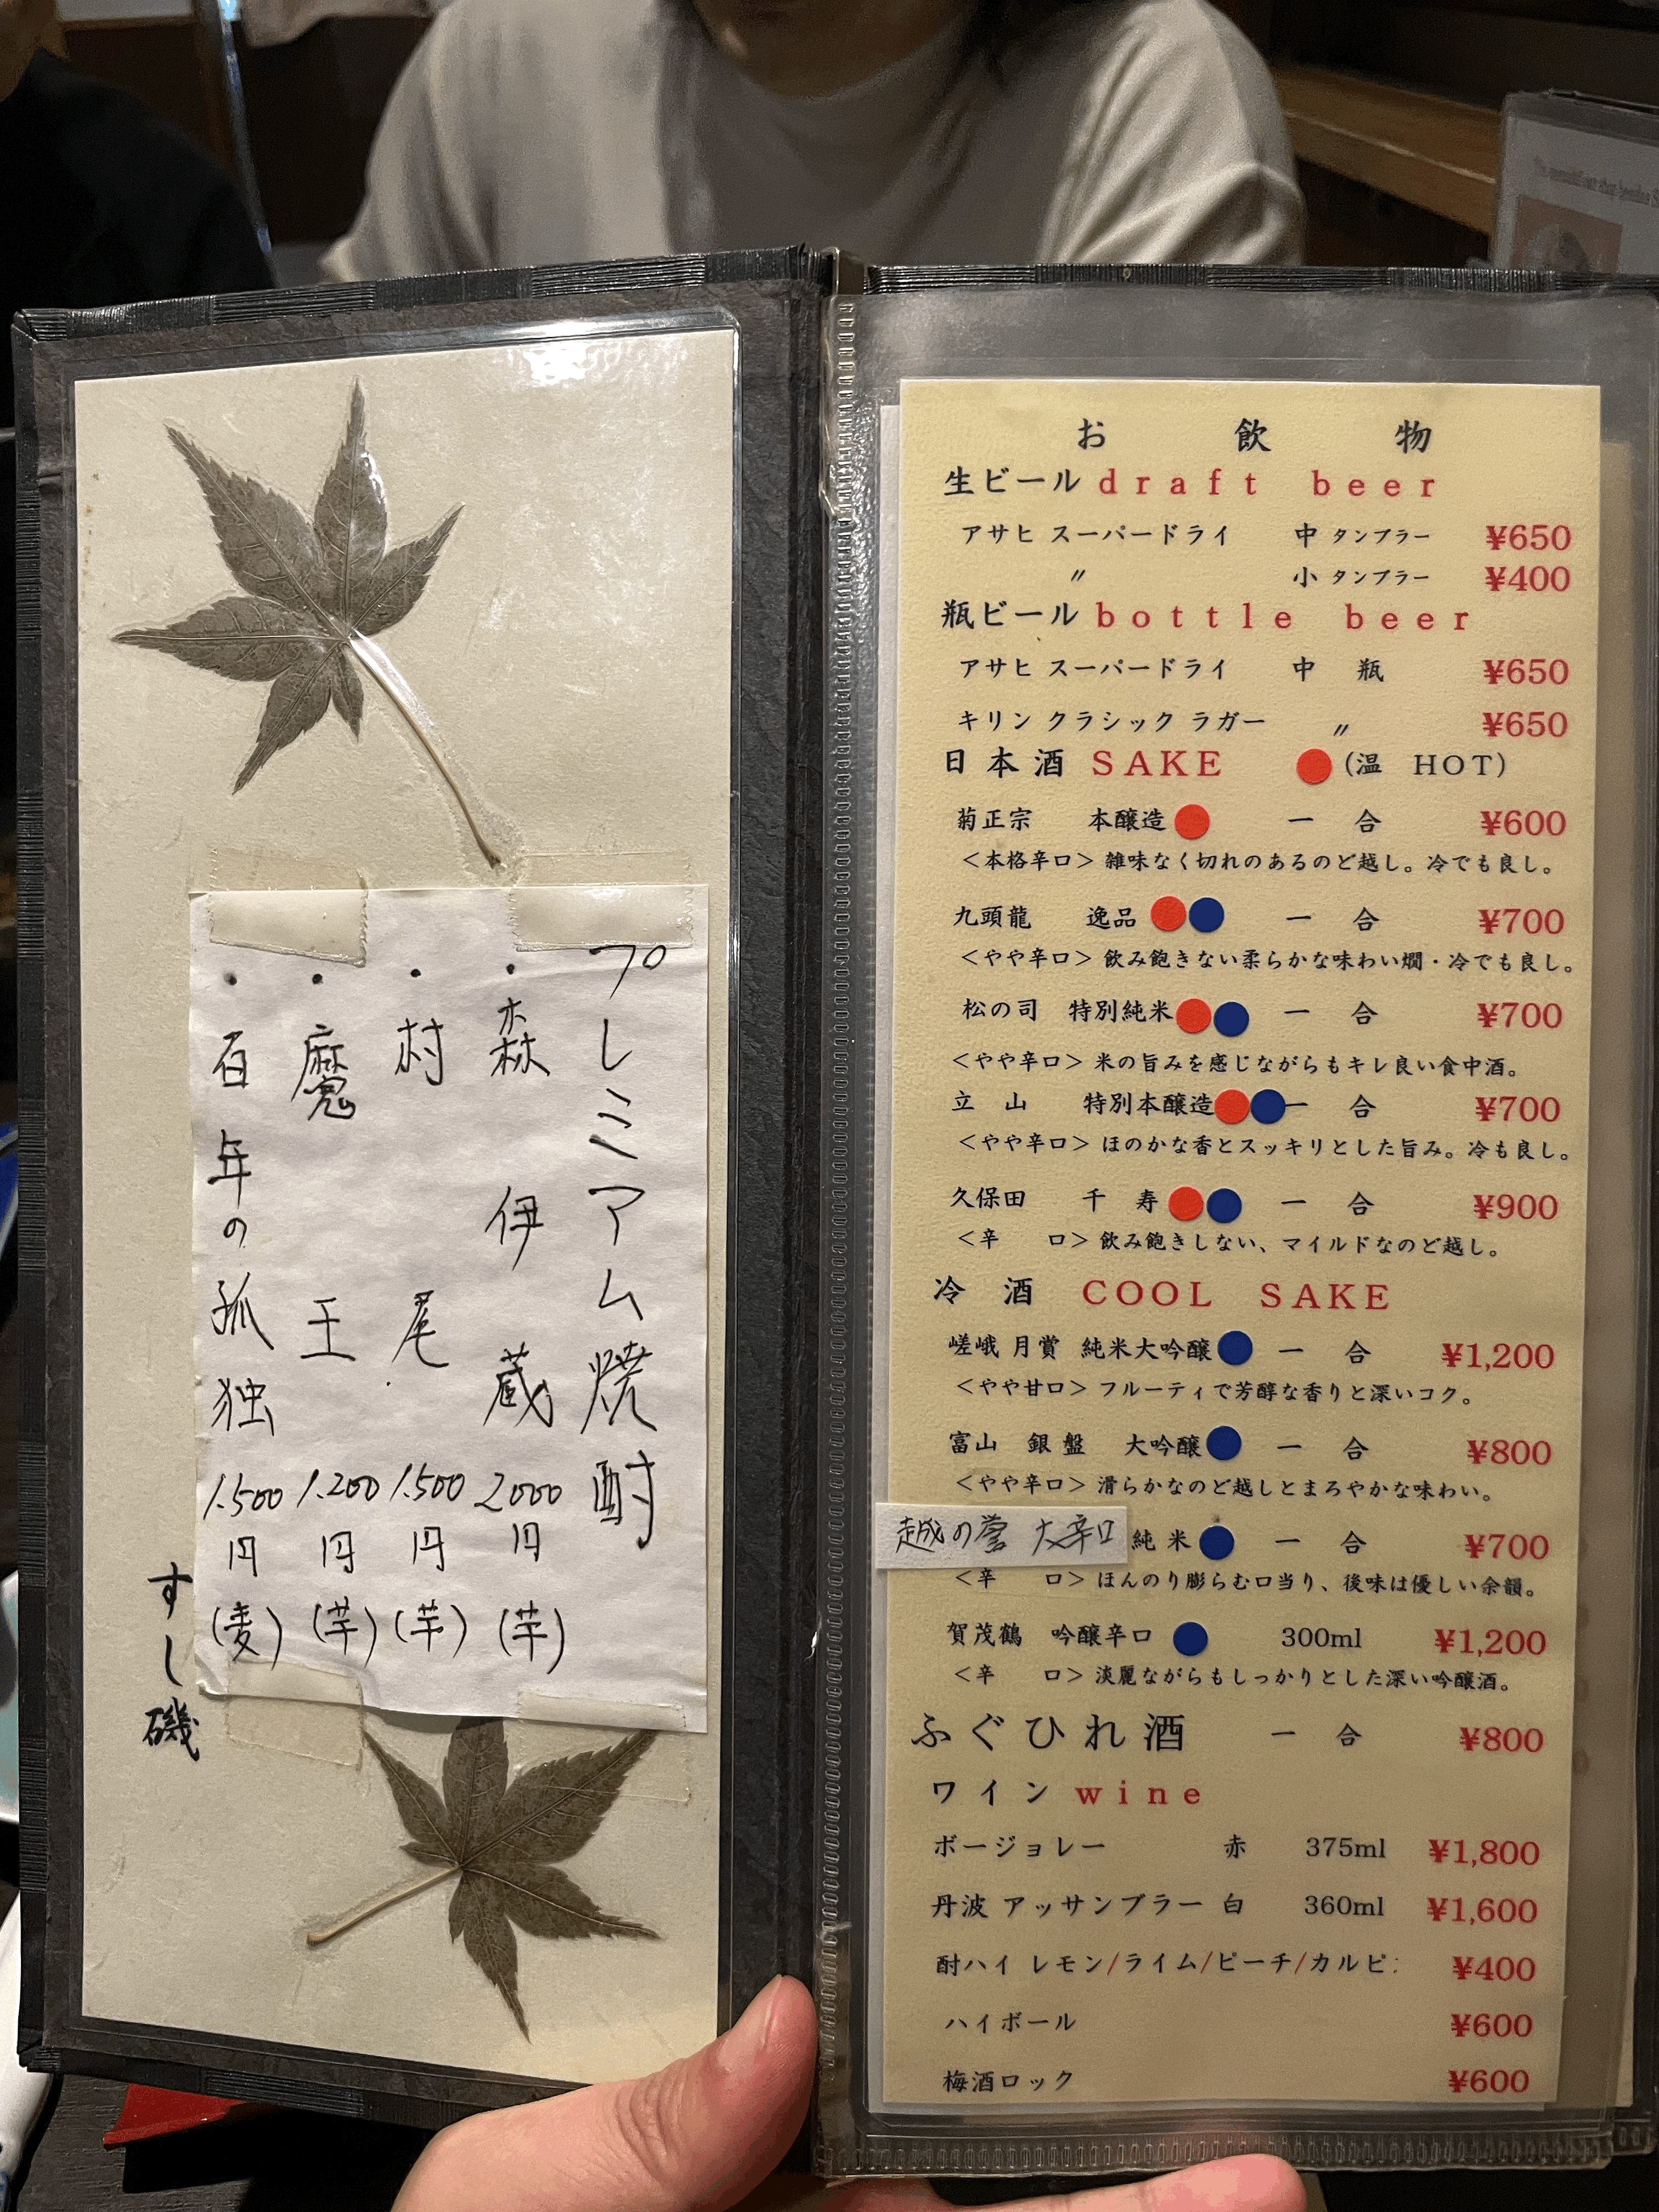 プレミアム焼酎
・森伊蔵 2000円 (芋)
・村尾 1.500円 (芋)
・魔王 1.200円 (芋)
・百年の孤独 1.500円 (麦)
すし磯
お飲物
生ビール draft beer
アサヒ スーパードライ 中 タンブラー ¥650
〃 小 タンブラー ¥400
瓶ビール bottle beer
アサヒ スーパードライ 中 瓶 ¥650
キリン クラシック ラガー 〃 ¥650
日本酒 SAKE (温 HOT)
菊正宗 本醸造 一合 ¥600
＜本格辛口＞ 雑味なく切れのあるのど越し。冷でも良し。
九頭龍 逸品 一合 ¥700
＜やや辛口＞ 飲み飽きない柔らかな味わい燗・冷でも良し。
松の司 特別純米 一合 ¥700
＜やや辛口＞ 米の旨みを感じながらもキレ良い食中酒。
立山 特別本醸造 一合 ¥700
＜やや辛口＞ ほのかな香とスッキリとした旨み。冷も良し。
久保田 千寿 一合 ¥900
＜辛口＞ 飲み飽きしない、マイルドなのど越し。
冷酒 COOL SAKE
嵯峨 月賞 純米大吟醸 一合 ¥1,200
＜やや甘口＞ フルーティで芳醇な香りと深いコク。
富山 銀盤 大吟醸 一合 ¥800
＜やや辛口＞ 滑らかなのど越しとまろやかな味わい。
越の誉 大辛口 純米 一合 ¥700
＜辛口＞ ほんのり膨らむ口当り、後味は優しい余韻。
賀茂鶴 吟醸辛口 300ml ¥1,200
＜辛口＞ 淡麗ながらもしっかりとした深い吟醸酒。
ふぐひれ酒 一合 ¥800
ワイン wine
ボージョレー 赤 375ml ¥1,800
丹波 アッサンブラー 白 360ml ¥1,600
酎ハイ レモン/ライム/ピーチ/カルピ ¥400
ハイボール ¥600
梅酒ロック ¥600